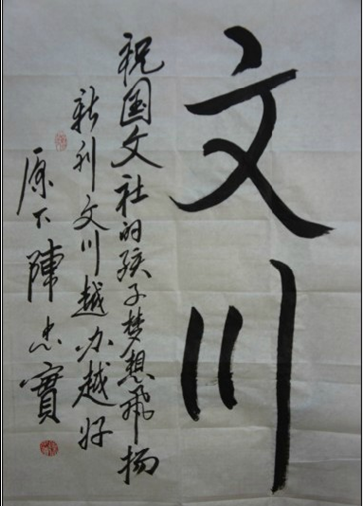 文川
祝国文社的孩子梦想飞扬
社刊文川越办越好
原下陳忠實